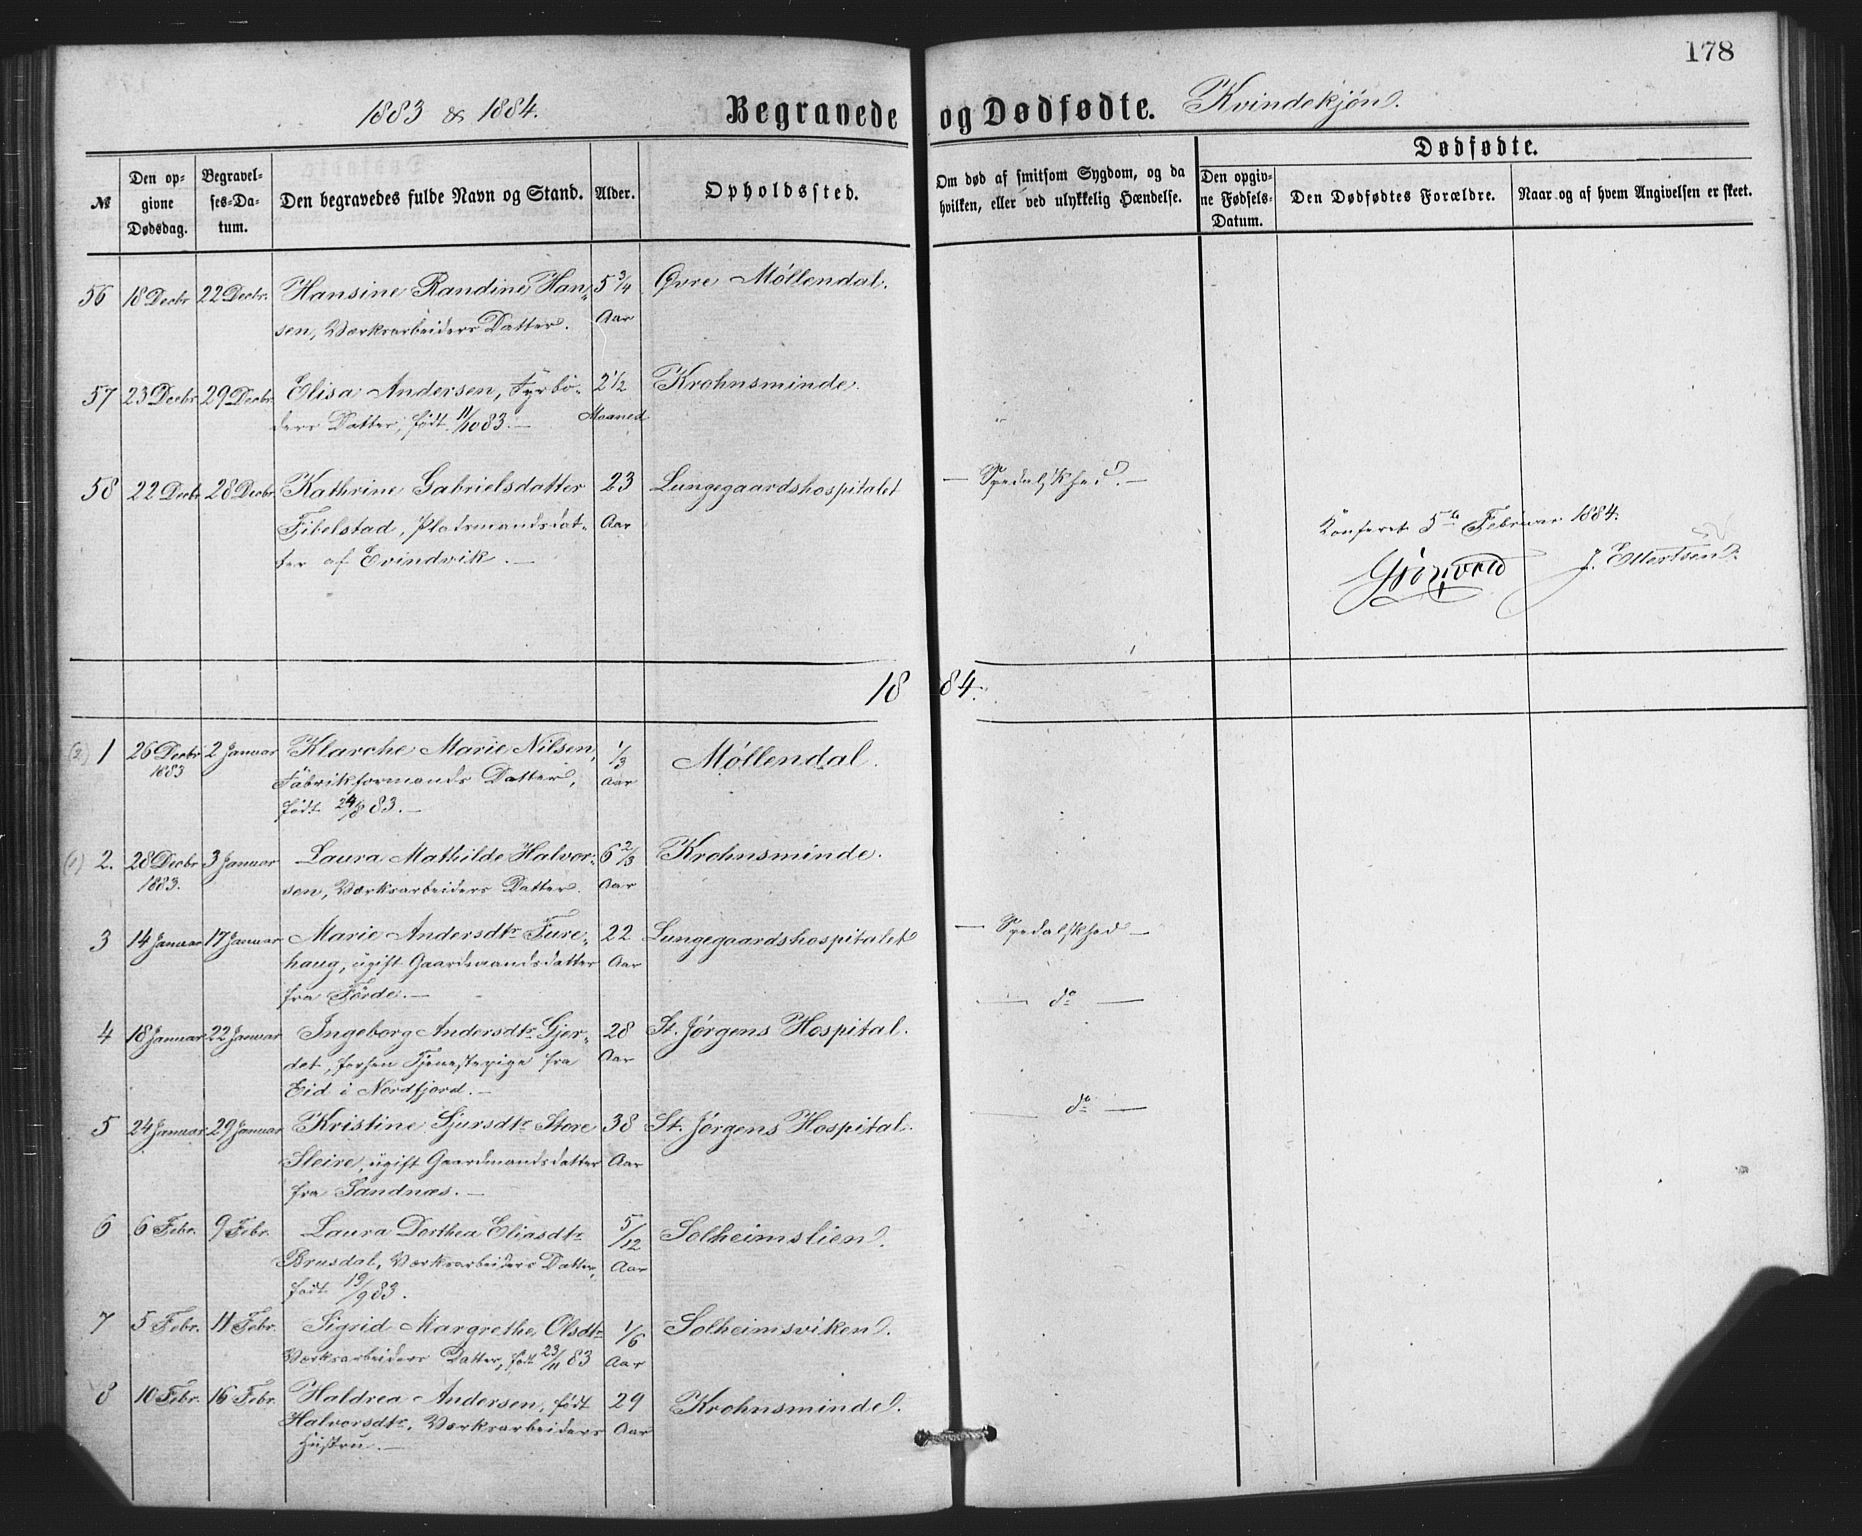 178
1883 & 1884.
Begravede og Dødfødte. Kvindekjøn.
№
Den opgivne Dødsdag.
Begravelses-Datum.
Den begravedes fulde Navn og Stand.
Alder.
Opholdssted.
Om død af smitsom Sygdom, og da hvilken, eller ved ulykkelig Hændelse.
Dødfødte.
Den opgivne Fødsels-Datum.
Den Dødfødtes Forældre.
Naar og af hvem Angivelsen er skeet.
56 18 Decbr 22 Decbr. Hansine Randine Han- 5 3/4 Øvre Møllendal.
sen, Værksarbeiders Datter. Aar
57 23 Decbr 29 Decbr Elisa Andersen, Fyrbø- 2 1/2 Krohnsminde.
ders Datter, født 11/10 83. — Maaned
58 22 Decbr 28 Decbr Kathrine Gabrielsdatter 23 Lungegaardshospitalet — Spedalskhed. —
Fibelstad, Pladsmandsdat- Aar
ter af Evindvik. —
Konfereret 5te Februar 1884.
J. Ellertsen.
1884.
(2) 1 26 Decbr 2 Januar Klarche Marie Nilsen, 1/3 Møllendal.
1883 Fabrikformands Datter, Aar
født 24/8 83. —
(1) 2. 28 Decbr 3 Januar Laura Mathilde Halvor- 6 2/3 Krohnsminde.
1883. sen, Værksarbeiders Datter. Aar
3 14 Januar 17 Januar Marie Andersdtr Fure- 22 Lungegaardshospitalet — Spedalskhed —
haug, ugift Gaardmandsdatter Aar
fra Førde. —
4 18 Januar 22 Januar Ingeborg Andersdtr Gjer- 28 St. Jørgens Hospital. — do —
det, forhen Tjenestepige fra Aar
Eid i Nordfjord. —
5 24 Januar 29 Januar Kristine Sjursdtr Store 38 St. Jørgens Hospital. — do —
Sleire, ugift Gaardmandsdatter Aar
fra Sandnæs. —
6 6 Febr. 9 Febr. Laura Dorthea Eliasdtr 5/12 Solheimslien.
Brusdal, Værksarbeiders Datter, Aar
født 19/9 83.
7 5 Febr. 11 Febr. Sigrid Margrethe Olsdtr 1/6 Solheimsviken.
Værksarbeiders Datter, født 23/11 83 Aar
8 10 Febr. 16 Febr. Haldrea Andersen, født 29 Krohnsminde.
Halvorsdtr, Værksarbeiders Aar
Hustru. —